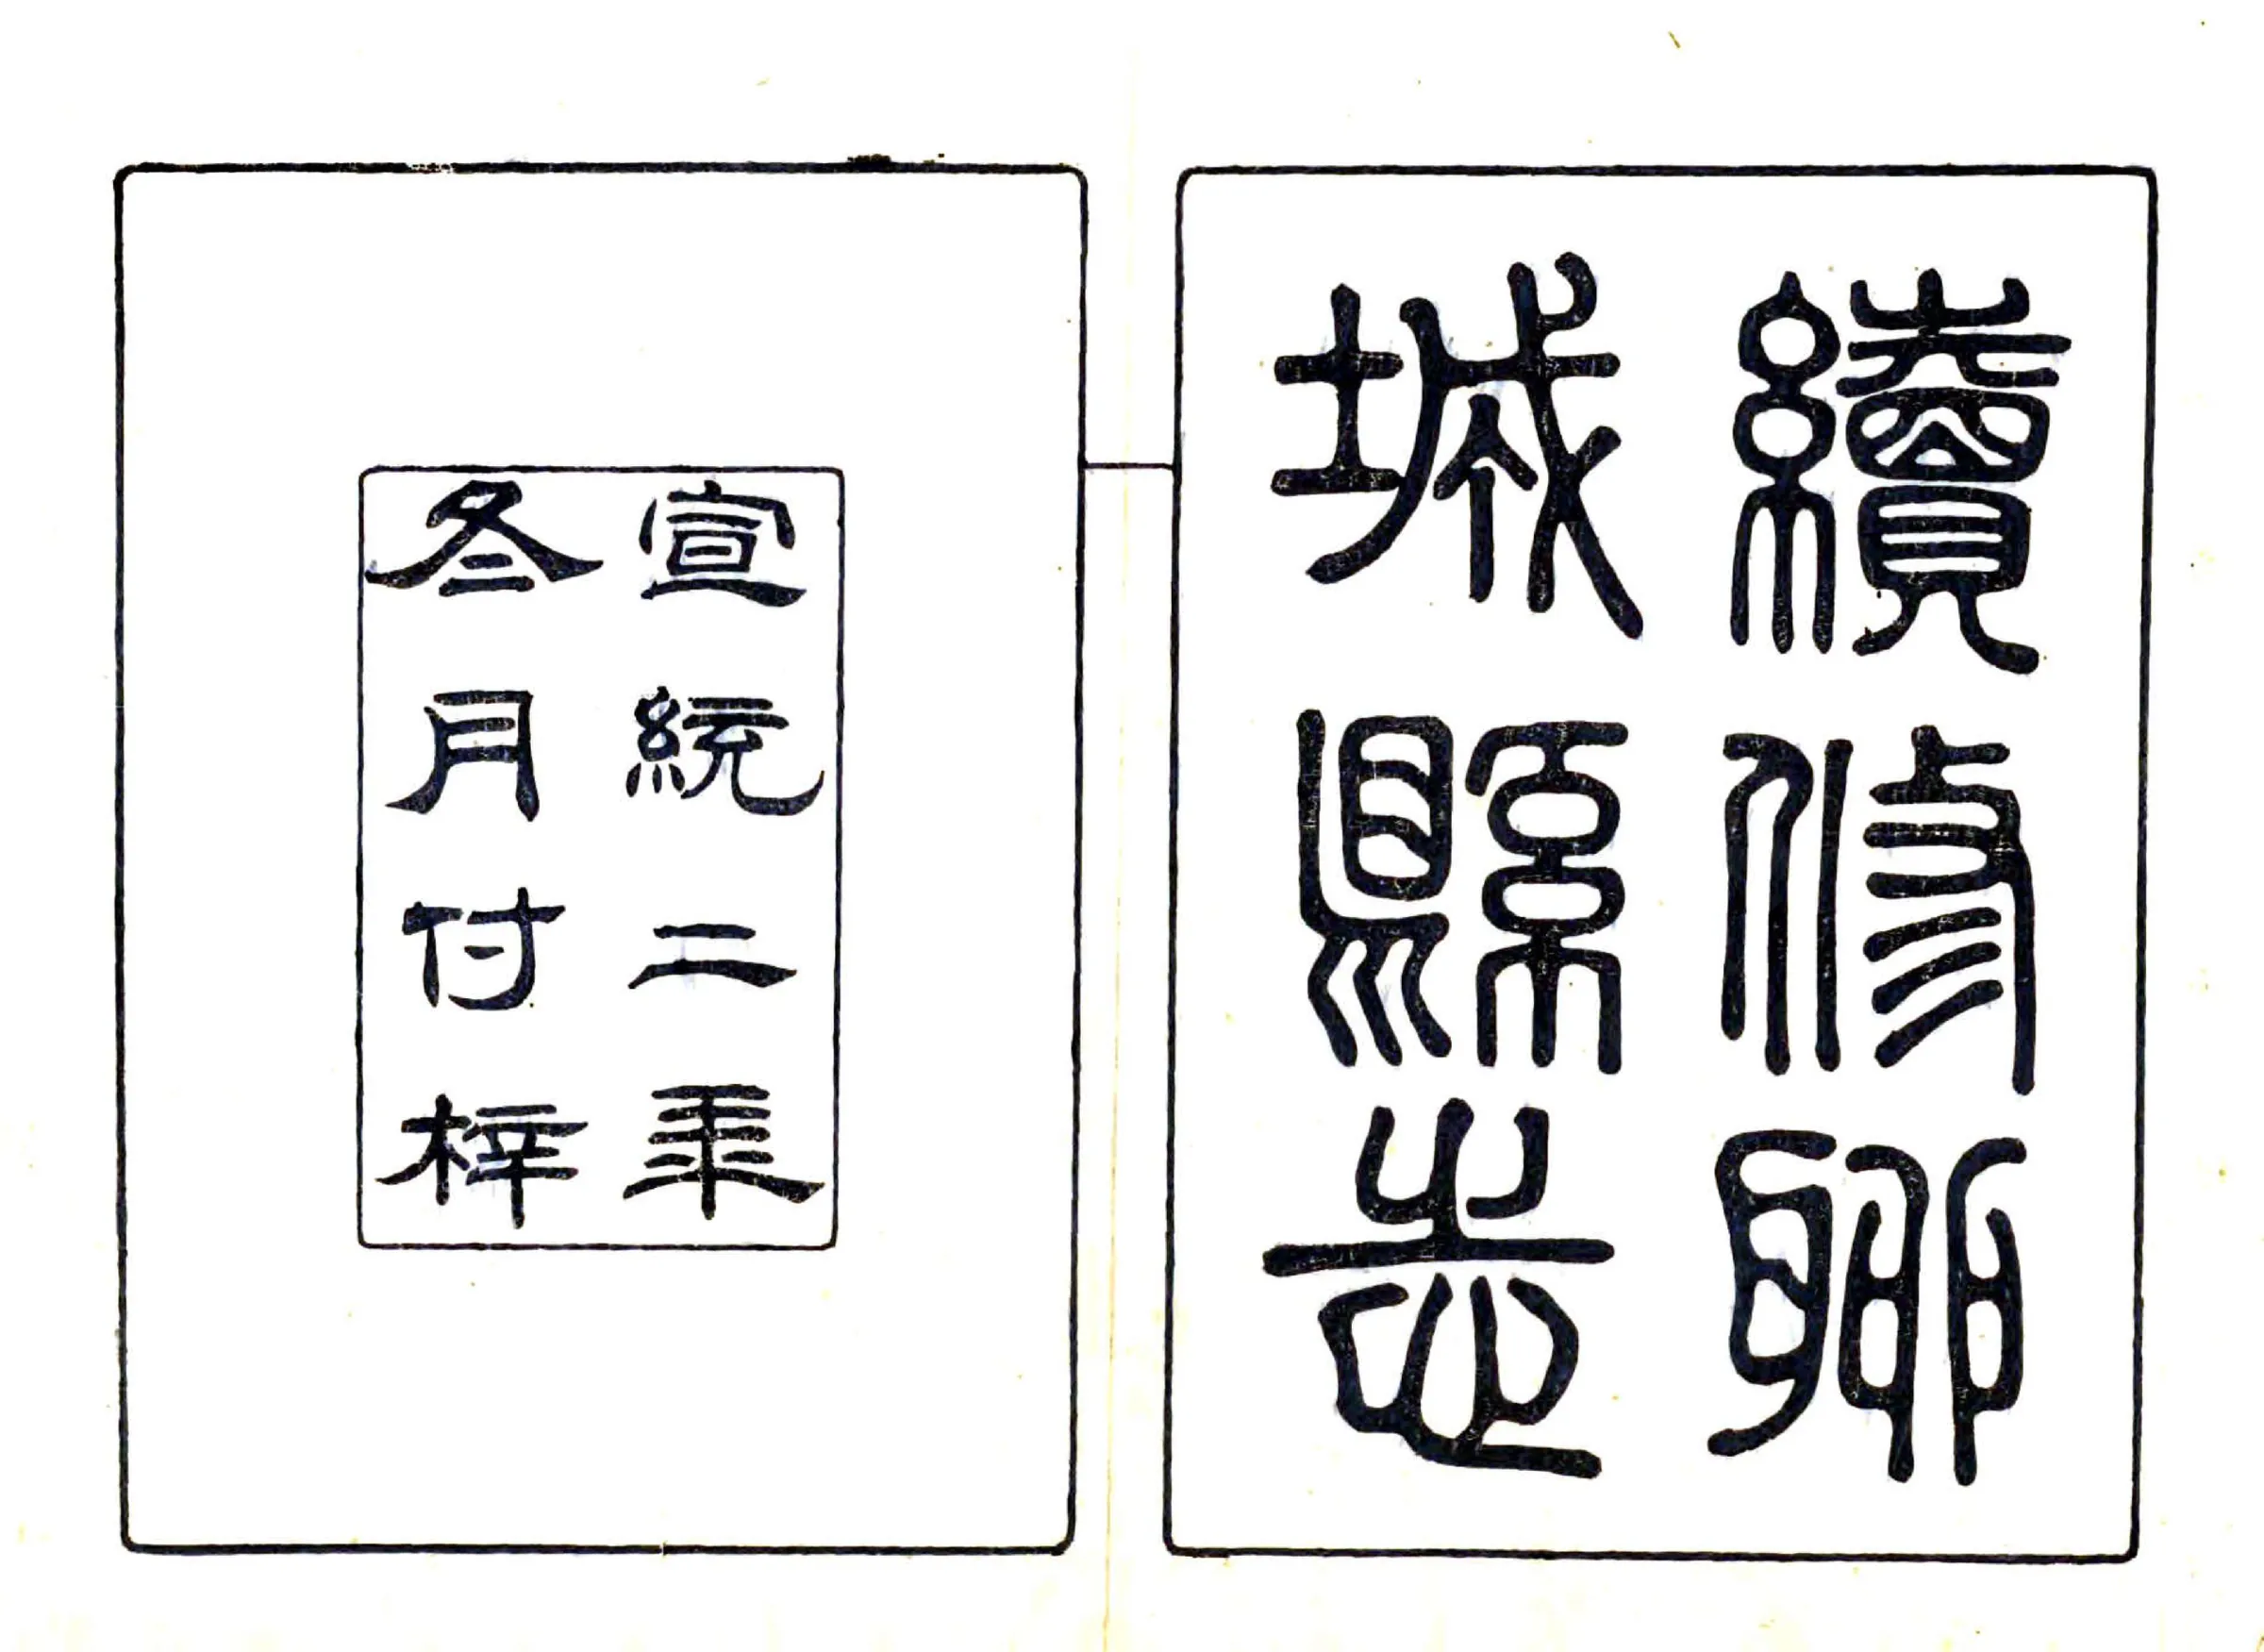 續修聊
城縣志
宣統二年
冬月付梓